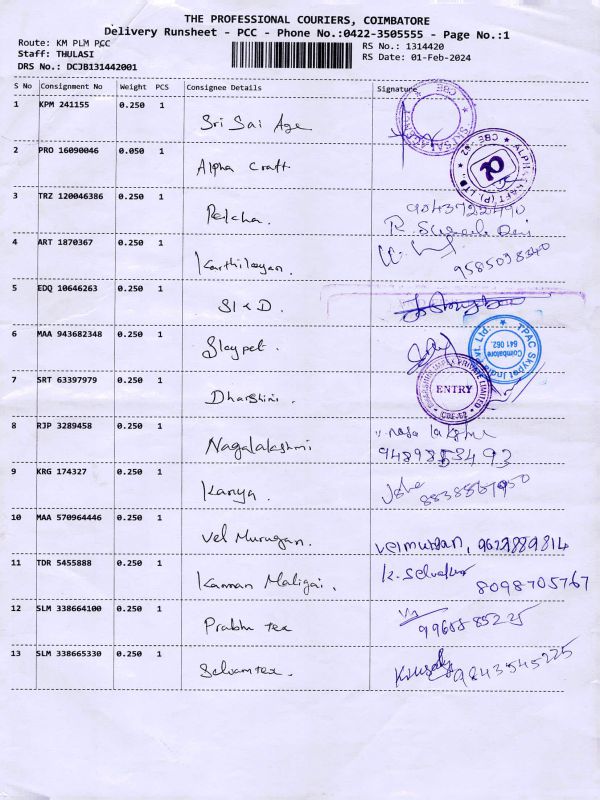 THE PROFESSIONAL COURIERS, COIMBATORE
Delivery Runsheet - PCC - Phone No.:0422-3505555 - Page No.:1
Route: KM PLM PCC
RS No.: 1314420
Staff: THULASI
RS Date: 01-Feb-2024
DRS No.: DCJB131442001
S No Consignment No Weight PCS Consignee Details Signature
1 KPM 241155 0.250 1 Sri Sai Age
2 PRO 16090046 0.050 1 Alpha Craft
3 TRZ 120046386 0.250 1
4 ART 1870367 0.250 1 Karthikeyan. 9585098340
5 EDQ 10646263 0.250 1
6 MAA 943682348 0.250 1
TPAC Skypet India Pvt. Ltd.
Coimbatore
641 062.
7 SRT 63397979 0.250 1 Dharshini.
ENTRY
CBE-62
8 RJP 3289458 0.250 1 Nagalakshmi
9 KRG 174327 0.250 1 Kanya.
10 MAA 570964446 0.250 1 Vel Murugan. velmurgan, 9629889814
11 TDR 5455888 0.250 1 Kannan Maligai. 8098705767
12 SLM 338664100 0.250 1 Prabhu tex
13 SLM 338665330 0.250 1 Selvamtex. 9843545225